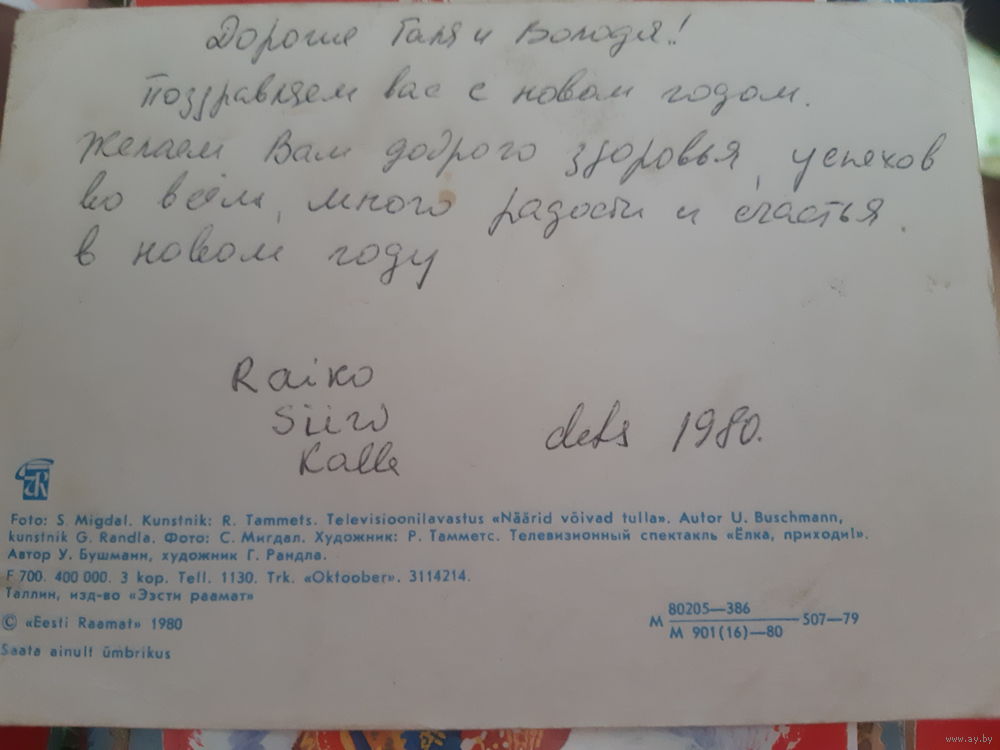 Дорогие Галя и Володя!!
Поздравляем вас с новом годом.
Желаем Вам доброго здоровья, успехов
во всём, много радости и счастья.
в новом году
Raiko
Siiri
Kalle
dets 1980.
TR
Foto: S. Migdal. Kunstnik: R. Tammets. Televisioonilavastus «Näärid võivad tulla». Autor U. Buschmann,
kunstnik G. Randla. Фото: С. Мигдал. Художник: Р. Тамметс. Телевизионный спектакль «Ёлка, приходи!».
Автор У. Бушманн, художник Г. Рандла.
F 700. 400 000. 3 kop. Tell. 1130. Trk. «Oktoober». 3114214.
Таллин, изд-во «Ээсти раамат»
© «Eesti Raamat» 1980
Saata ainult ümbrikus
М 80205—386
М 901(16)—80 507—79
www.ay.by